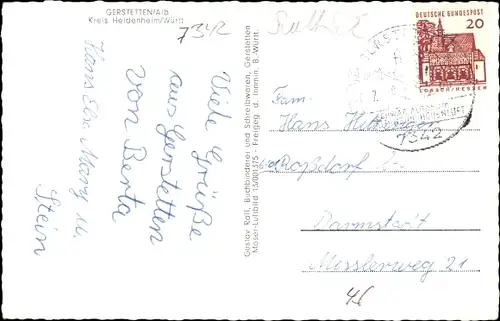 GERSTETTEN/Alb
Kreis Heidenheim/Württ.
7342
Viele Grüße
aus Gerstetten
von Berta
Hans Else Marg u.
Stein
Gustav Rall, Buchbinderei und Schreibwaren, Gerstetten
Moser-Luftbild 15/001375 - Freigeg. d. Innmin. B.-Württ.
DEUTSCHE BUNDESPOST
20
LORSCH/HESSEN
7342
Fam.
Hans
Roßdorf
Darmstadt
Messlerweg 21